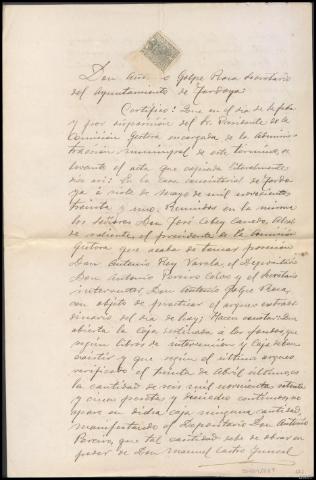 Don Antonio Golpe Roca Secretario
del Ayuntamiento de
Certifico: Que en el dia de la fecha
y por disposición del Sr. Presidente de la
Comisión Gestora encargada de la Adminis
tración municipal de este termino, se
levantó el acta que copiada literalmente
dice asi: En la Casa Consistorial de
a siete de Mayo de mil novecientos
treinta y uno. Reunidos en la misma
los señores Don José Cobey Canedo, Alcal
de saliente, el presidente de la Comisión
Gestora que acaba de tomar posesión
Don Antonio Rey Varela el Depositario
Don Antonio Pereiro Calvo y el Secretario
interventor Don Antonio Golpe Roca,
con objeto de practicar el arqueo extraor
dinario del dia de hoy; Hacen constar: Que
abierta la Caja destinada á los fondos que
según libros de intervención y Caja deben
existir y que según el último arqueo
verificado el treinta de Abril último, es
la cantidad de seis mil novecientas setenta
y cinco pesetas y dieciocho centimos, no
aparece en dicha caja ninguna cantidad,
manifestando el Depositario Don Antonio
Pereiro, que tal cantidad debe de obrar en
poder de Don Manuel Castro